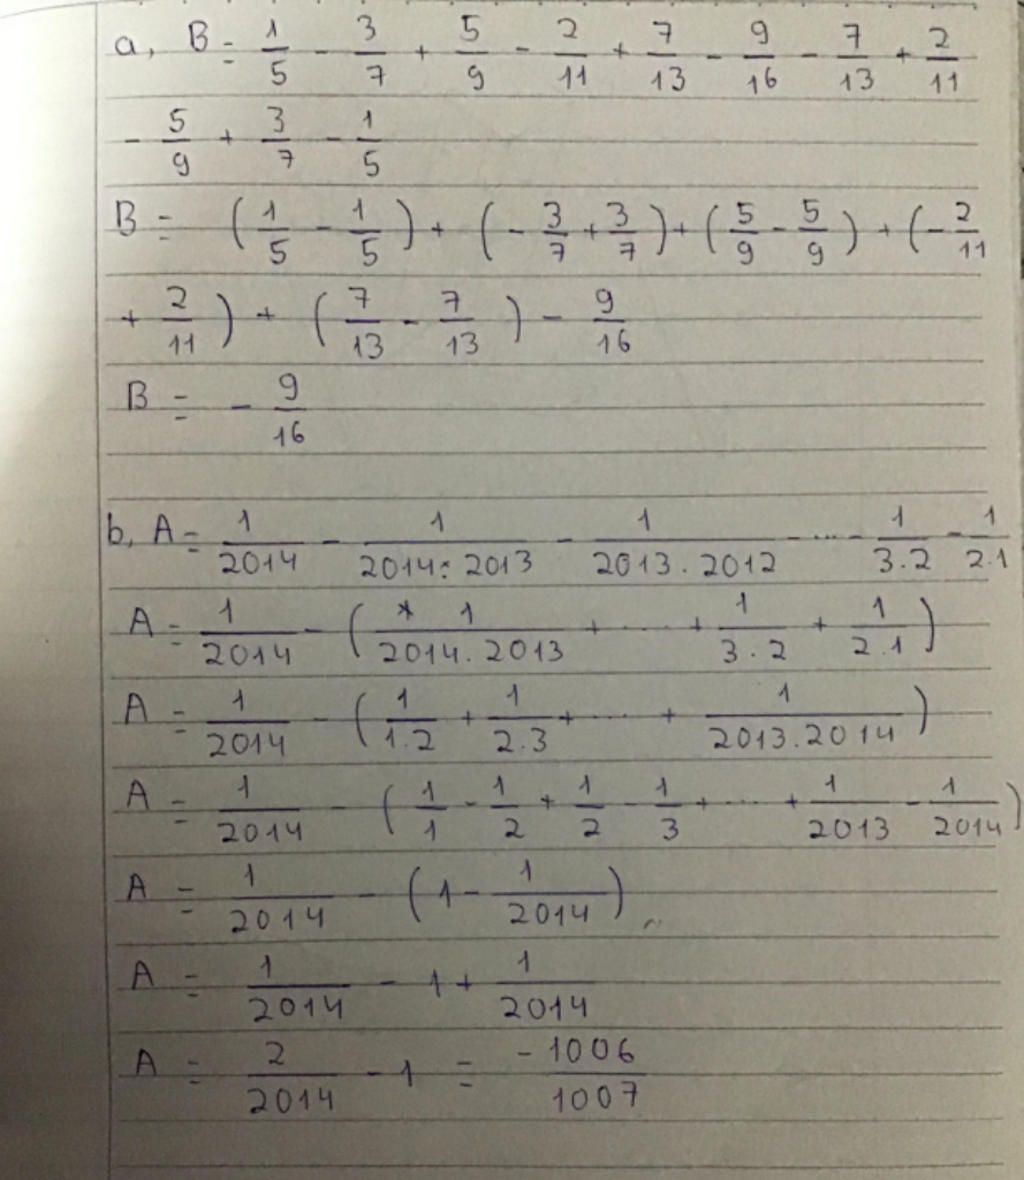 a, B = 1/5 - 3/7 + 5/9 - 2/11 + 7/13 - 9/16 - 7/13 + 2/11
- 5/9 + 3/7 - 1/5
B = (1/5 - 1/5) + (-3/7 + 3/7) + (5/9 - 5/9) + (-2/11
+ 2/11) + (7/13 - 7/13) - 9/16
B = - 9/16
b, A = 1/2014 - 1/2014.2013 - 1/2013.2012 - ... - 1/3.2 - 1/2.1
A = 1/2014 - (1/2014.2013 + ..... + 1/3.2 + 1/2.1)
A = 1/2014 - (1/1.2 + 1/2.3 + ..... + 1/2013.2014)
A = 1/2014 - (1/1 - 1/2 + 1/2 - 1/3 + ..... + 1/2013 - 1/2014)
A = 1/2014 - (1 - 1/2014)
A = 1/2014 - 1 + 1/2014
A = 2/2014 - 1 = -1006/1007